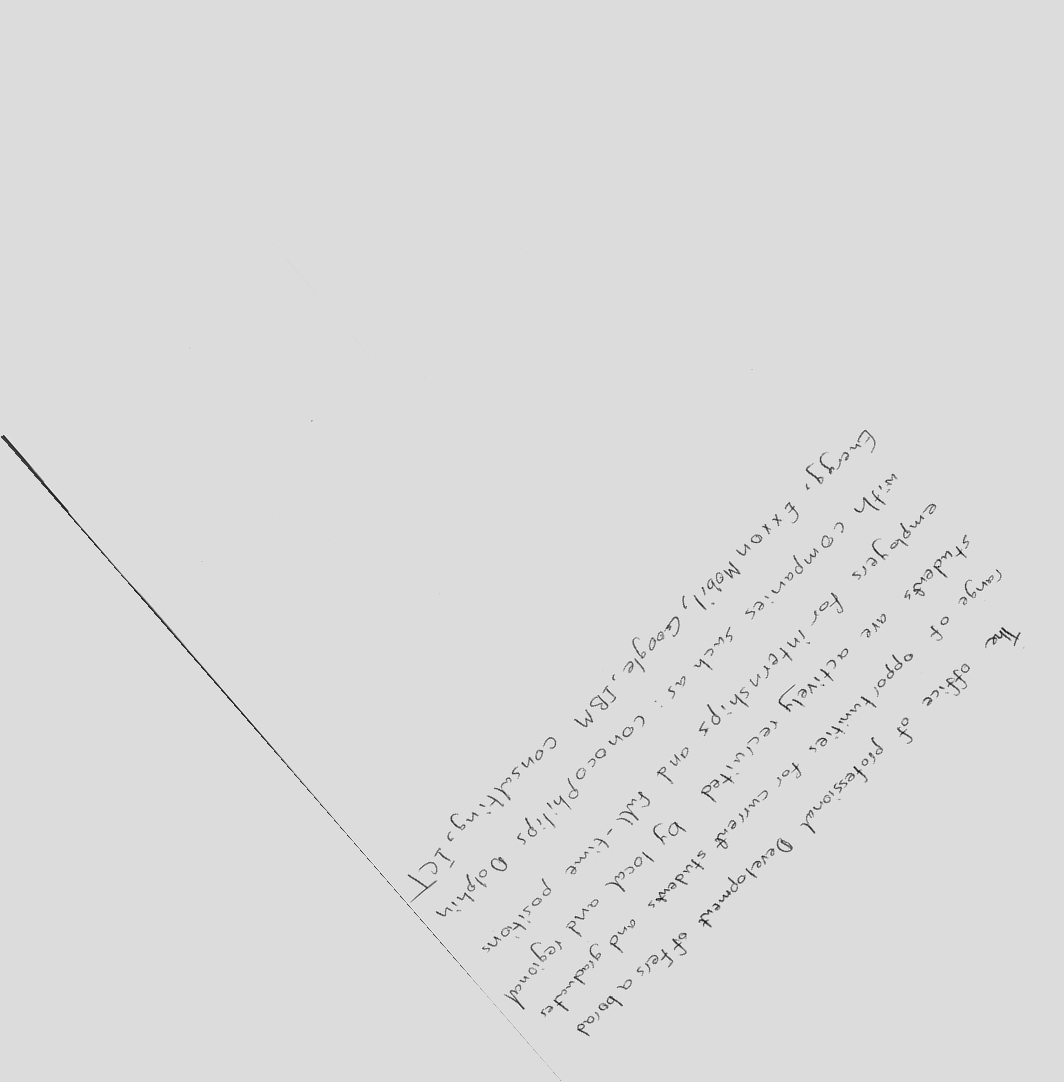 The office of professional Development offers a borad
range of opportunities for current students and graduates
students are actively recruited by local and regional
employers for internships and full-time positions
with companies such as : conocophilips Dolphin
Energy, Exxon Mobil, Google, IBM consulting, ICT